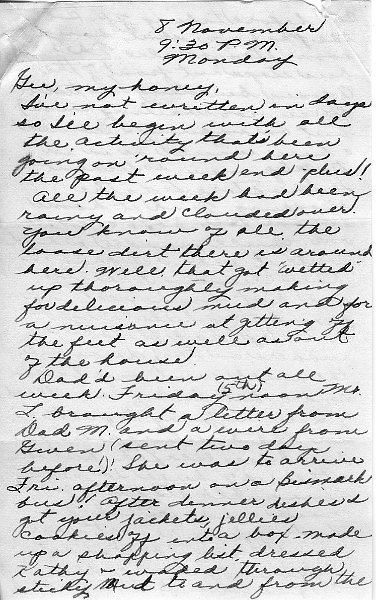 8 November
9:30 P.M.
Monday
Gee, my honey,
I've not written in days
so I'll begin with all
the activity that's been
going on 'round here
the past week end plus!
All the week had been
rainy and clouded over.
You know of all the
loose dirt there is around
here. Well, that got "wetted"
up thoroughly making
for delicious mud and for
a nuisance at getting off
the feet as well as out
of the house.
Dad'd been out all
week. Friday noon (5th) Mr.
L. brought a letter from
Dad M. and a wire from
Gwen (sent two days
before)! She was to arrive
Fri. afternoon on a Bismark
bus! After dinner dishes I
got your jackets, jellies
cookies off into a box - made
up a shopping list, dressed
Kathy & waded through
sticky mud to and from the